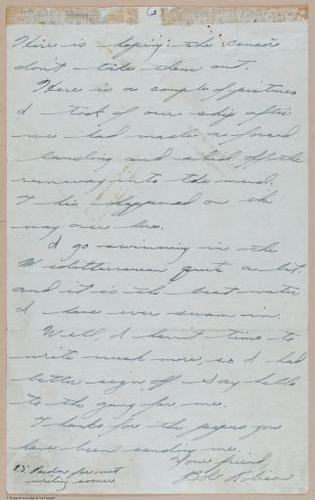 Here is hoping the censor
don't take them out.
Here is a couple of pictures
I took of our ship after
we had made a forced
landing and slid off the
runway into the mud.
This happened on the
way over here.
I go swimming in the
Mediterranean quite a bit
and it is the best water
I have ever swam in.
Well, I haven't time to
write much more, so I had
better sign off. Say hello
to the gang for me.
Thanks for the papers you
have been sending me.
Your friend,
Bob
P.S. Pardon for not
writing sooner